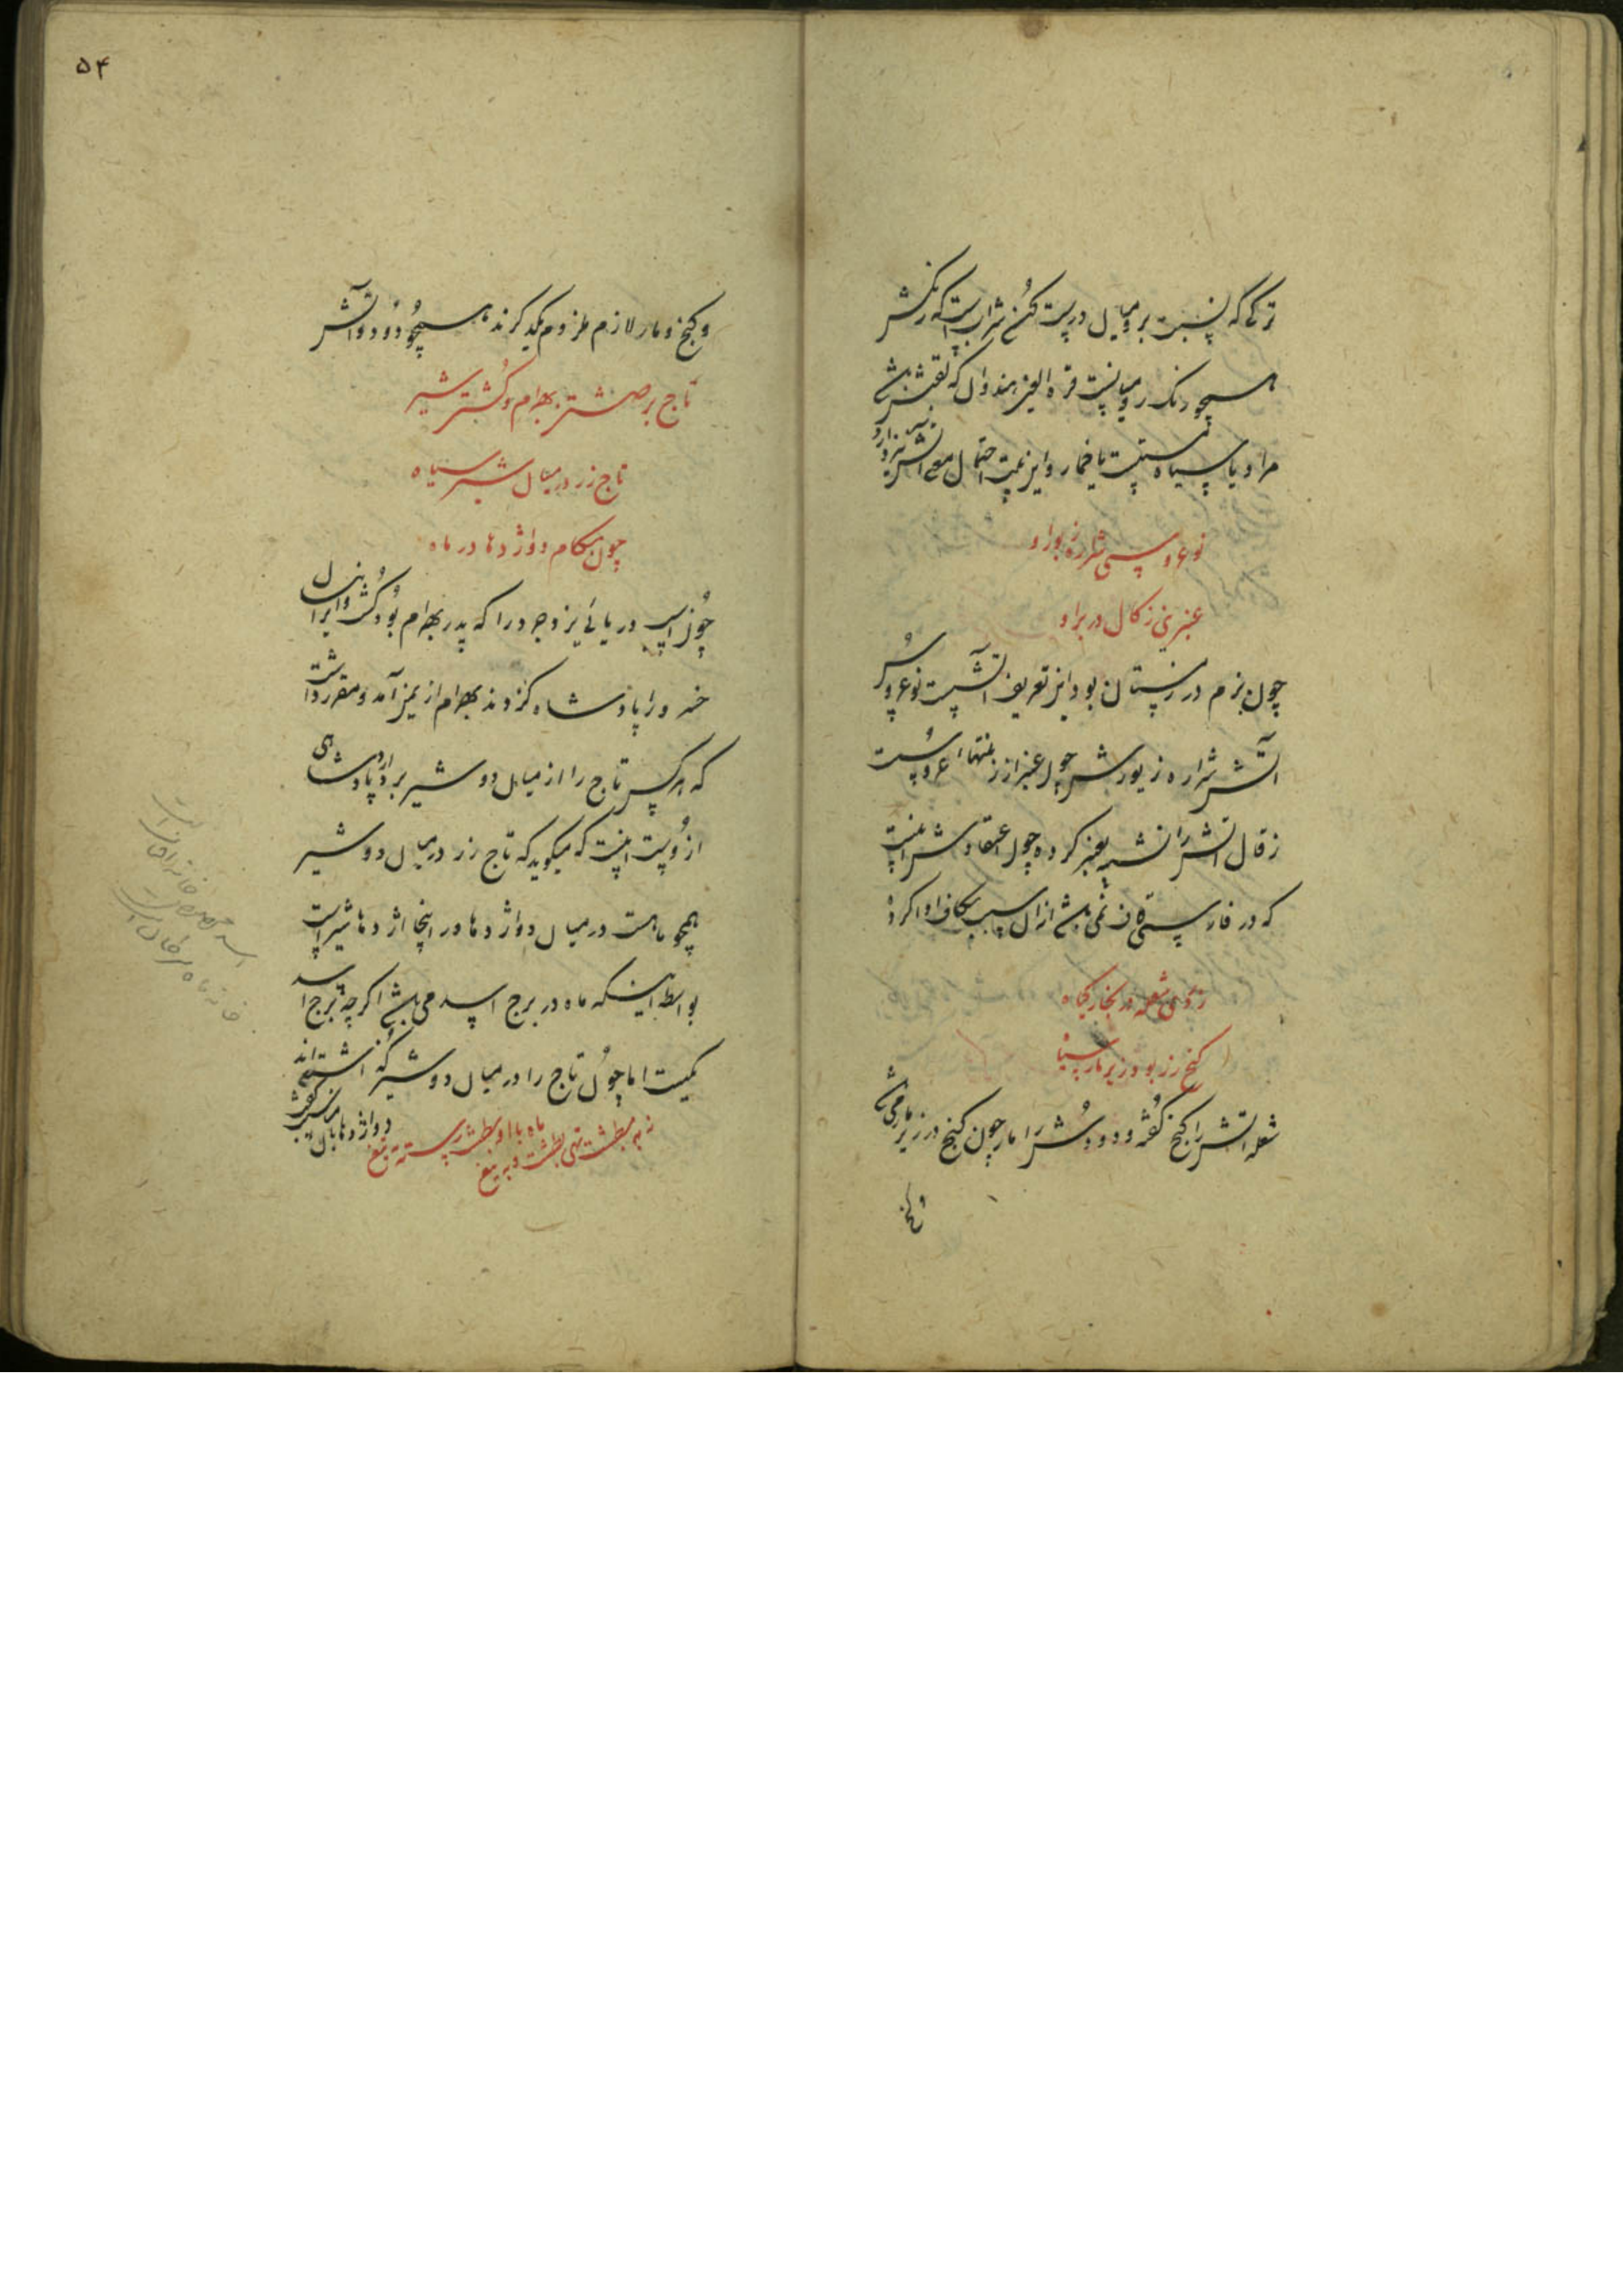 ترکی که نسبت برومیان درست کن شرابست که رنگش
همچو رنگ رومیانست قرة العین هندوان که لقبش باشد
مراد یا سیاه مستیست یا خمار و این بیت احتمال معنی
نوعروسی شراره زیور او
عنبرینی زکال در بر او
چون بزم در زمستان بود این تعریف آتشست نوعروس
آتش شراره زیورش چون عنبر از
زقال آتش را تشبیه بعنبر کرده چون اعتقادش اینست
که در فارسی قاف نمی باشد از آن سبب بکاف ادا کرد
زردی شعله در بخار گیاه
گنج زر بود زیر مار سیاه
شعله آتش را گنج گفته و دودش را مار چون گنج در زیر مار می باشد
و گنج
۵۴
و گنج و مار لازم ملزوم یکدیگرند همچو دود و آتش
تاج برداشتن بهرام و کشتن شیر
تاج زر در میان شیر سیاه
چون بکام دو اژدها در ماه
چون اسب دریائی یزدجرد را که پدر بهرام بود کشت و ایرانیان
خسرو را پادشاه کردند بهرام از یمن آمد و مقرر داشت
که هر کس تاج را از میان دو شیر بردارد پادشاهی
از وست اینست که میگوید که تاج زر در میان دو شیر
همچو ماهست در میان دو اژدها و در اینجا اژدها شیر است
بواسطه اینکه ماه در برج اسد می باشد اگر چه برج اسد
یکیست اما چون تاج را در میان دو شیر گذاشته اند
دو اژدها
ماه با او بطشت رسته به تیغ
نه به طشت تهی به طشت و به تیغ